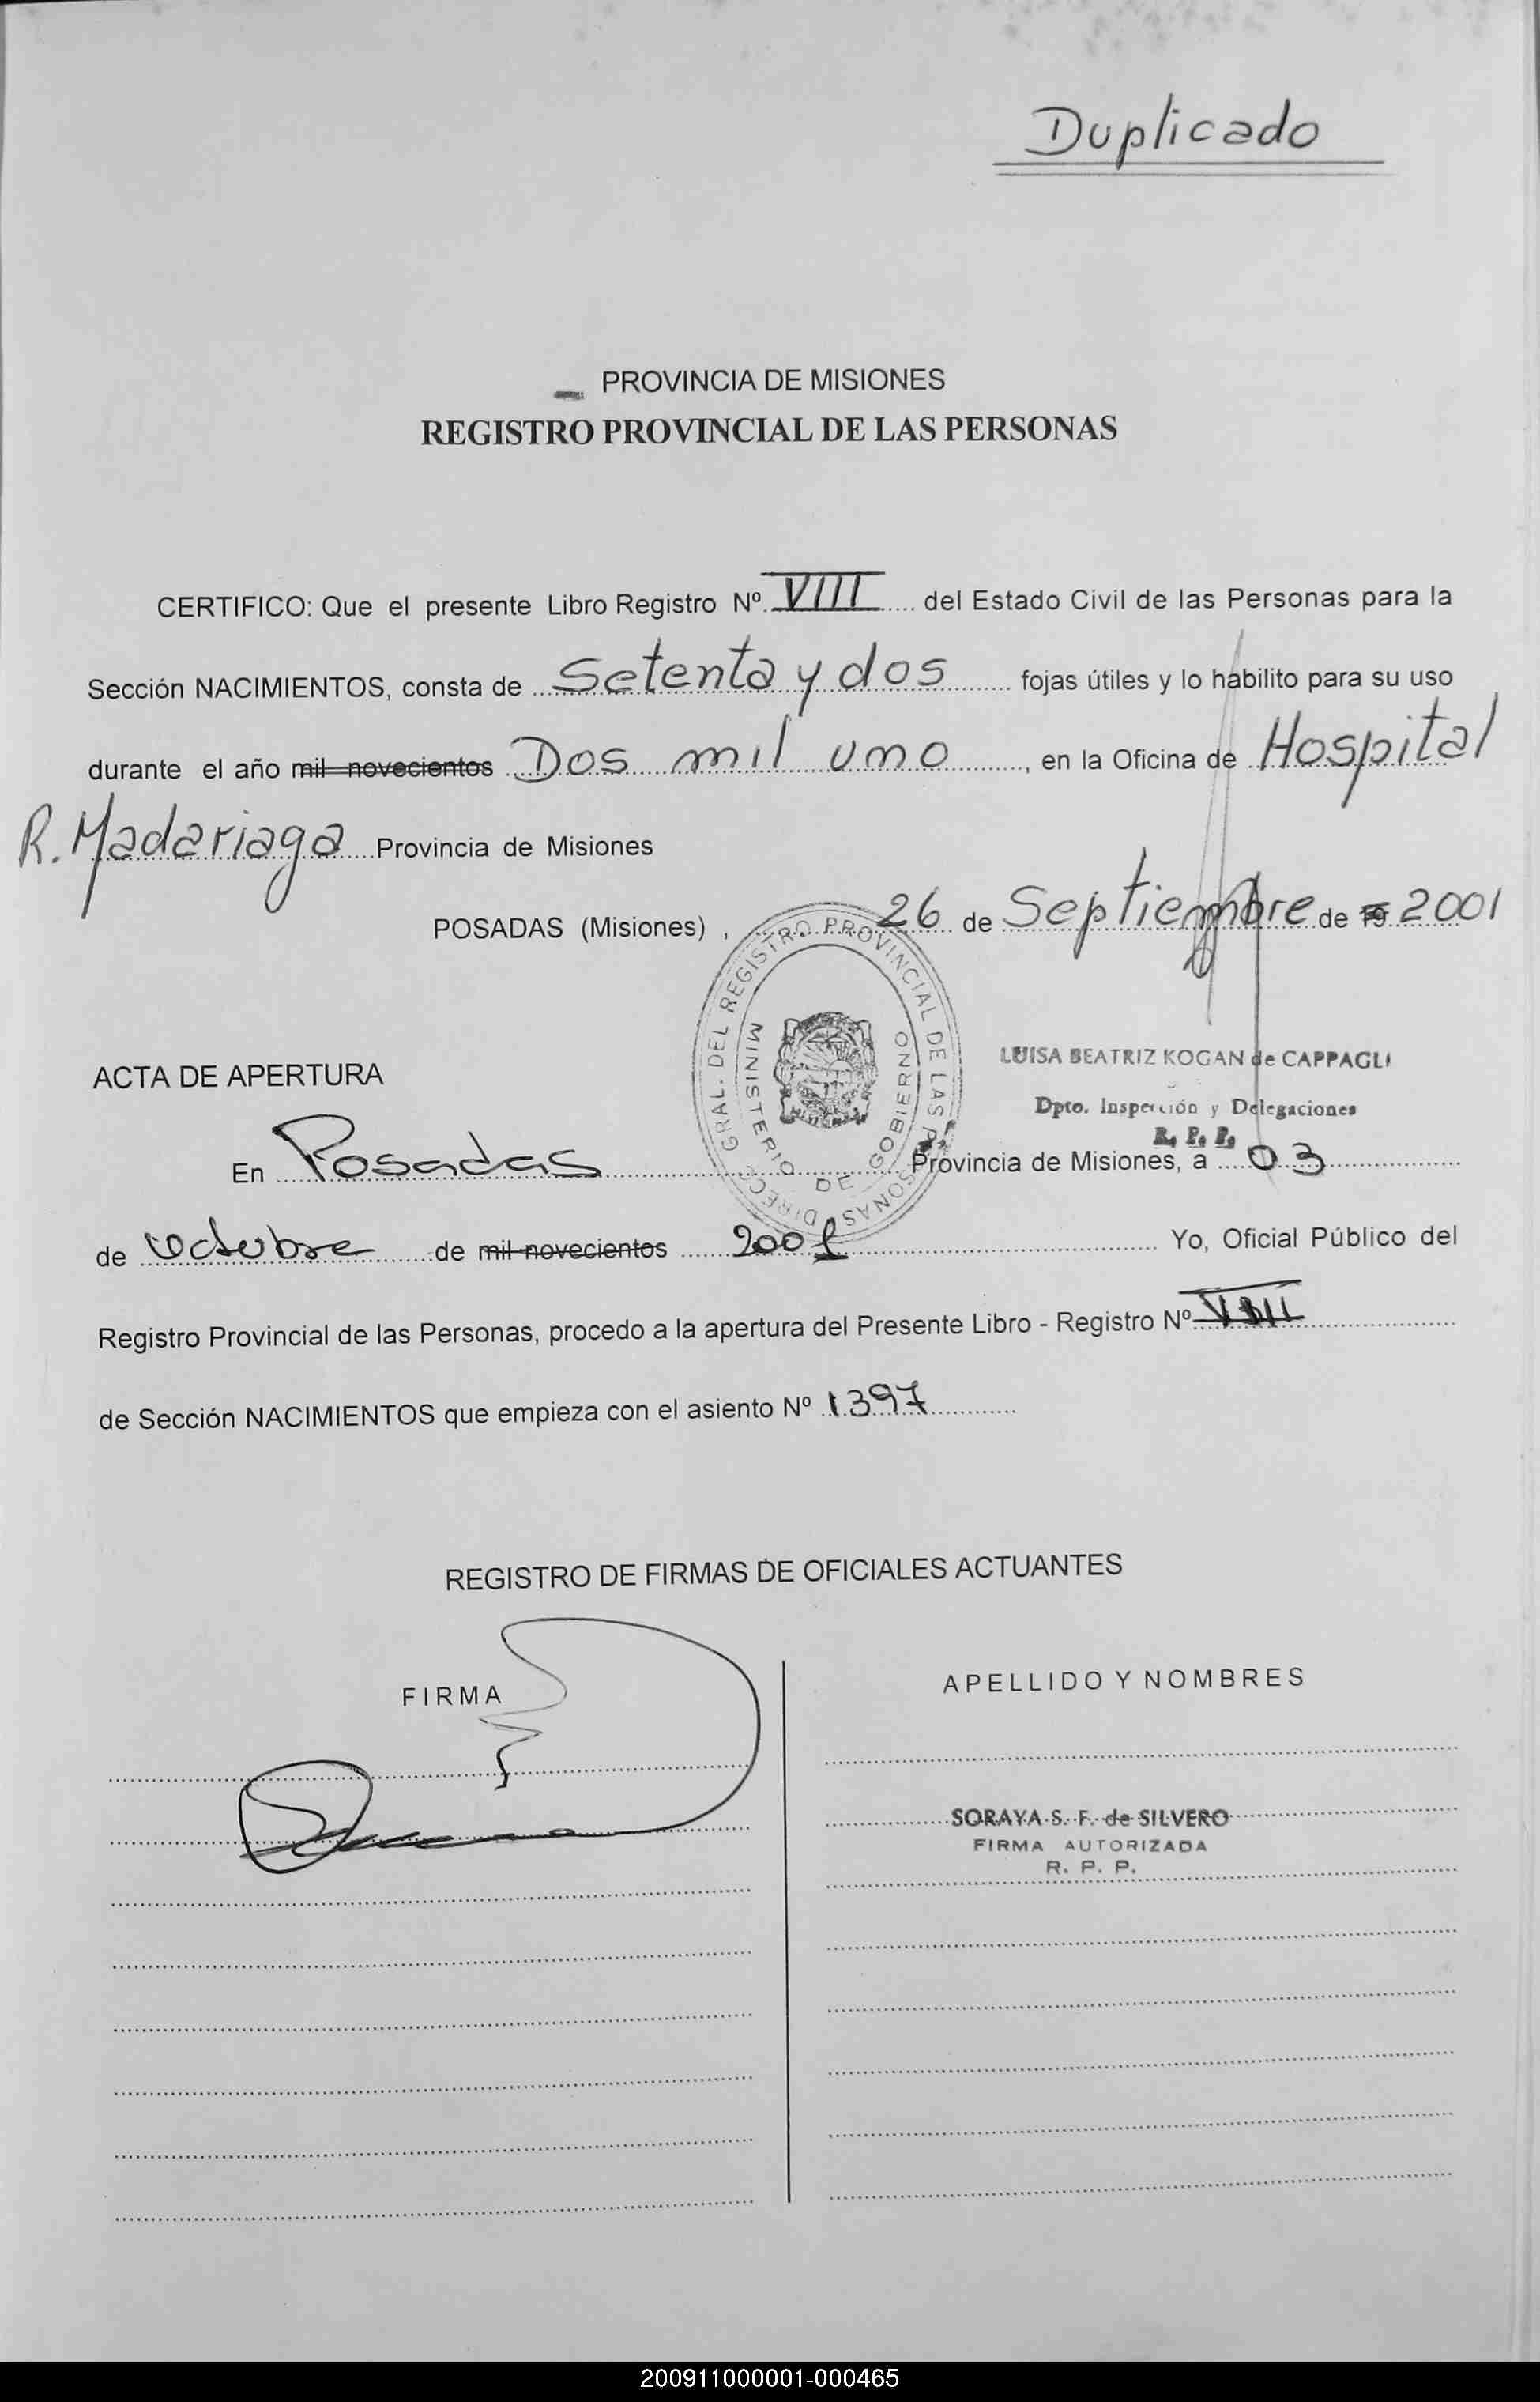 Duplicado
PROVINCIA DE MISIONES
REGISTRO PROVINCIAL DE LAS PERSONAS
CERTIFICO: Que el presente Libro Registro Nº VIII del Estado Civil de las Personas para la
Sección NACIMIENTOS, consta de Setenta y dos fojas útiles y lo habilito para su uso
durante el año mil novecientos Dos mil uno, en la Oficina de Hospital
R. Madariaga Provincia de Misiones
POSADAS (Misiones), 26 de Septiembre de 19 2001
DIRECC. GRAL. DEL REGISTRO PROVINCIAL DE LAS PERSONAS
MINISTERIO DE GOBIERNO
LUISA BEATRIZ KOGAN de CAPPAGLI
Dpto. Inspección y Delegaciones
R. P. P.
ACTA DE APERTURA
En Posadas Provincia de Misiones, a 03
de Octubre de mil novecientos 2001 Yo, Oficial Público del
Registro Provincial de las Personas, procedo a la apertura del Presente Libro - Registro Nº VIII
de Sección NACIMIENTOS que empieza con el asiento Nº 1397
REGISTRO DE FIRMAS DE OFICIALES ACTUANTES
FIRMA
APELLIDO Y NOMBRES
SORAYA S. F. de SILVERO
FIRMA AUTORIZADA
R. P. P.
200911000001-000465